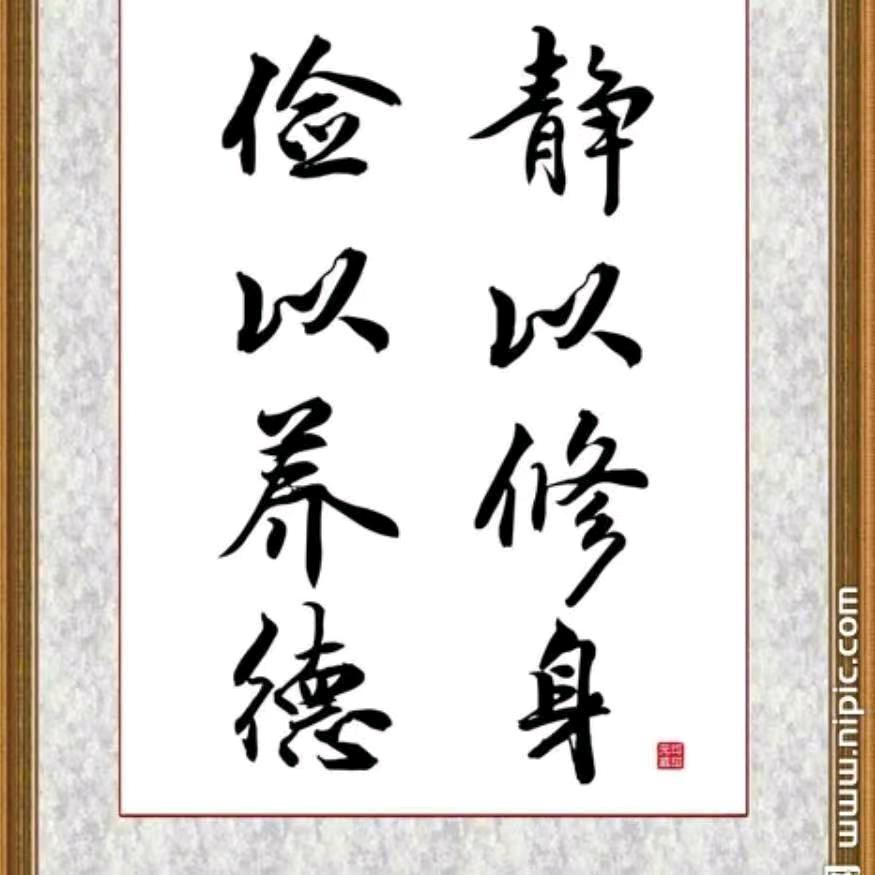 静以修身
俭以养德
www.nipic.com